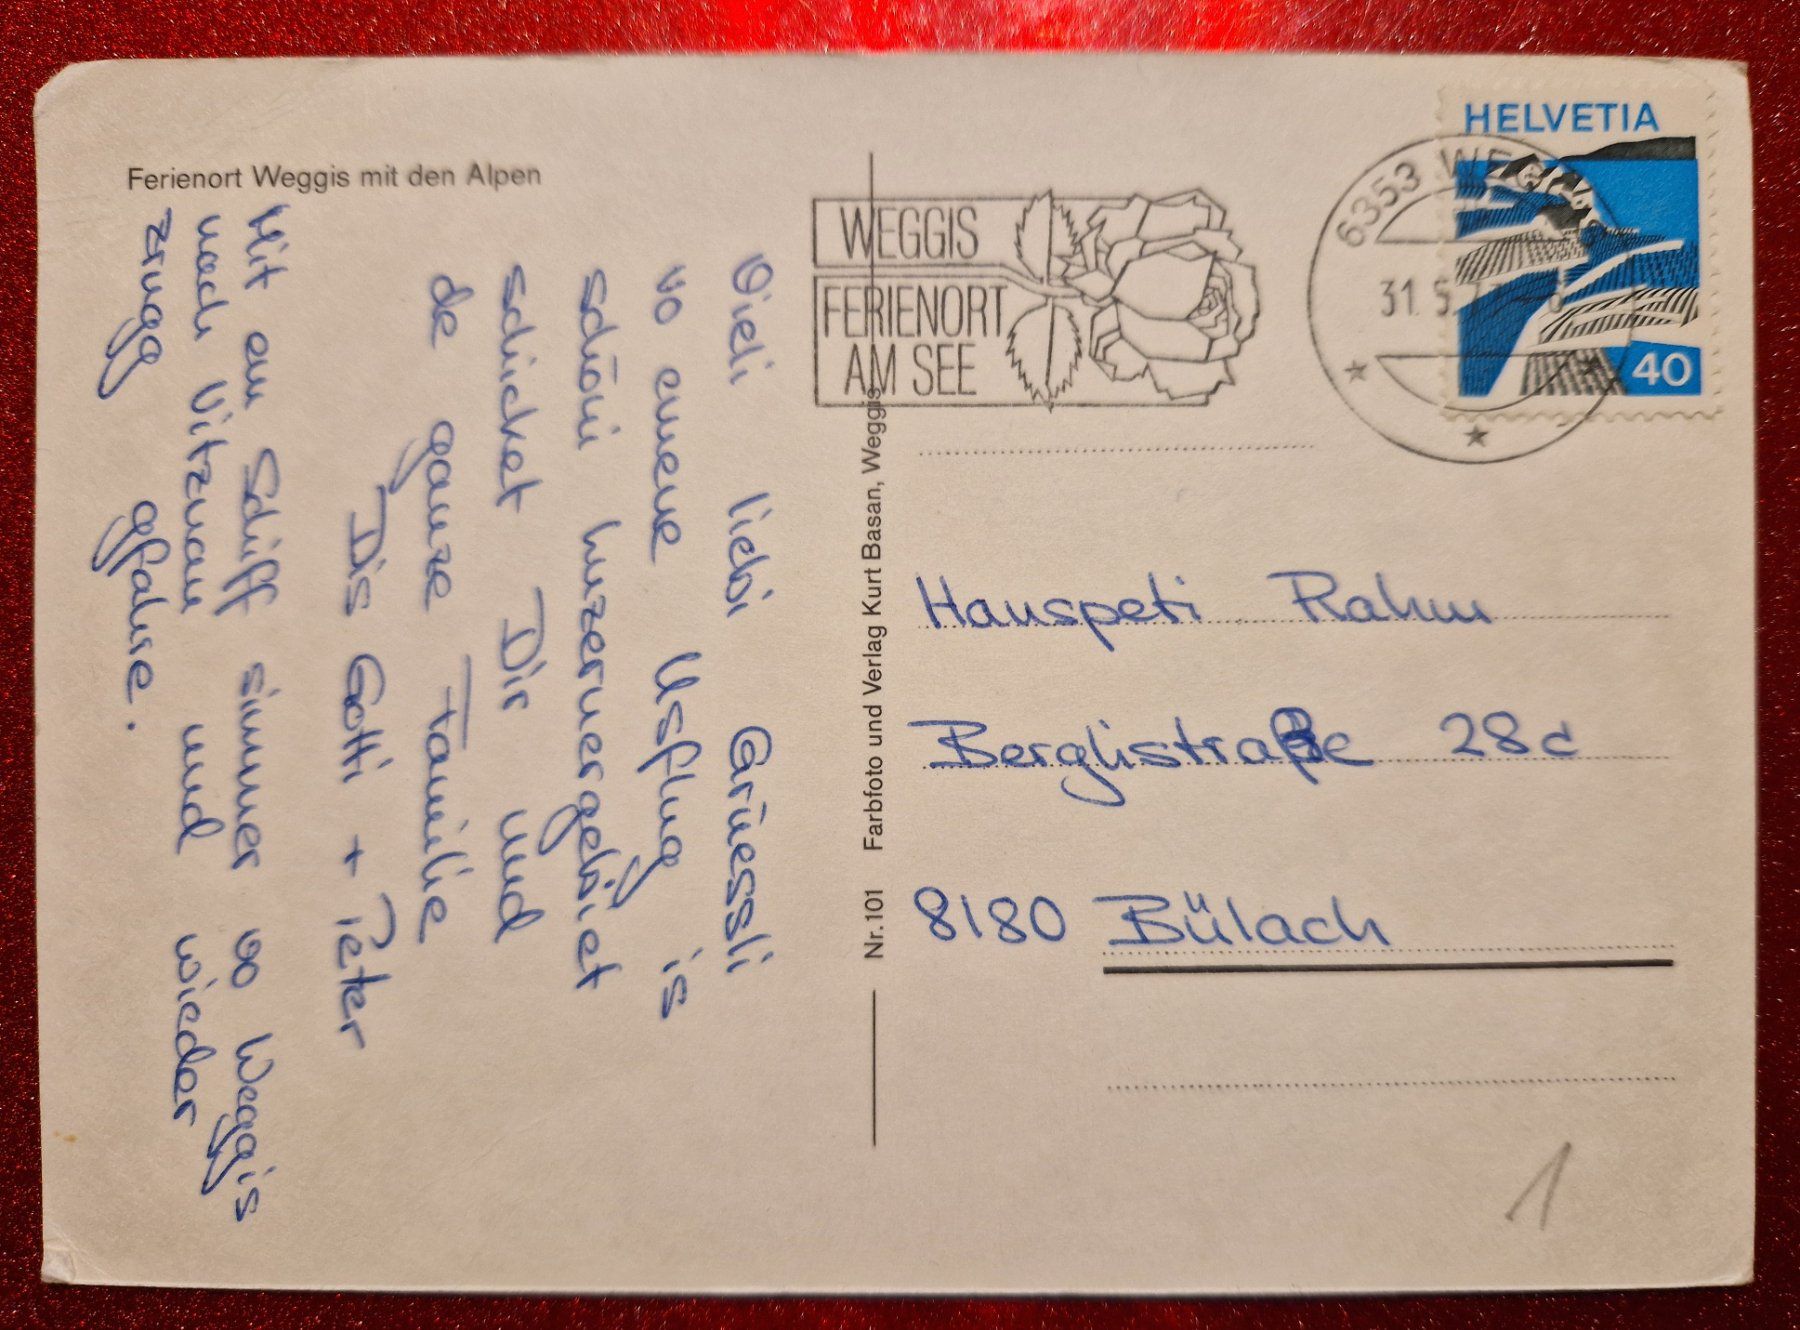 Ferienort Weggis mit den Alpen
Vieli liebi Grüessli
vo emene Usflug is
schöni Luzernergebiet
schicket Dir und
de ganze Familie
Dis Gotti + Peter
Mit em Schiff simmer vo Weggis
nach Vitznau und wieder
zrugg gfahre.
Nr. 101 Farbfoto und Verlag Kurt Basan, Weggis
WEGGIS
FERIENORT
AM SEE
6353 WEGGIS
31. 5.
HELVETIA
40
Hanspeti Rahm
Berglistraße 28c
8180 Bülach
1